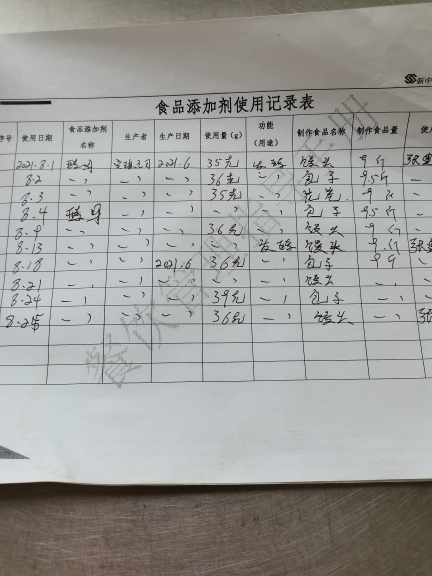 新中
食品添加剂使用记录表
序号 使用日期 食品添加剂名称 生产者 生产日期 使用量(g) 功能(用途) 制作食品名称 制作食品量 使
2021.8.1 酵母 2021.6 35克 发酵 馒头 9斤
8.2 〃 〃 〃 36克 〃 包子 9.5斤 〃
8.3 〃 〃 〃 35克 〃 花卷 9斤 〃
8.4 酵母 〃 〃 〃 〃 包子 9.5斤 〃
8.9 〃 〃 〃 36克 〃 馒头 9斤 〃
8.13 〃 〃 〃 〃 发酵 馒头 9斤
8.18 〃 〃 2021.6 36克 〃 包子 9斤
8.21 〃 〃 〃 〃 〃 馒头 〃
8.24 〃 〃 〃 39克 〃 包子 〃 〃
8.25 〃 〃 〃 36克 〃 馒头 〃
餐饮管理指导手册